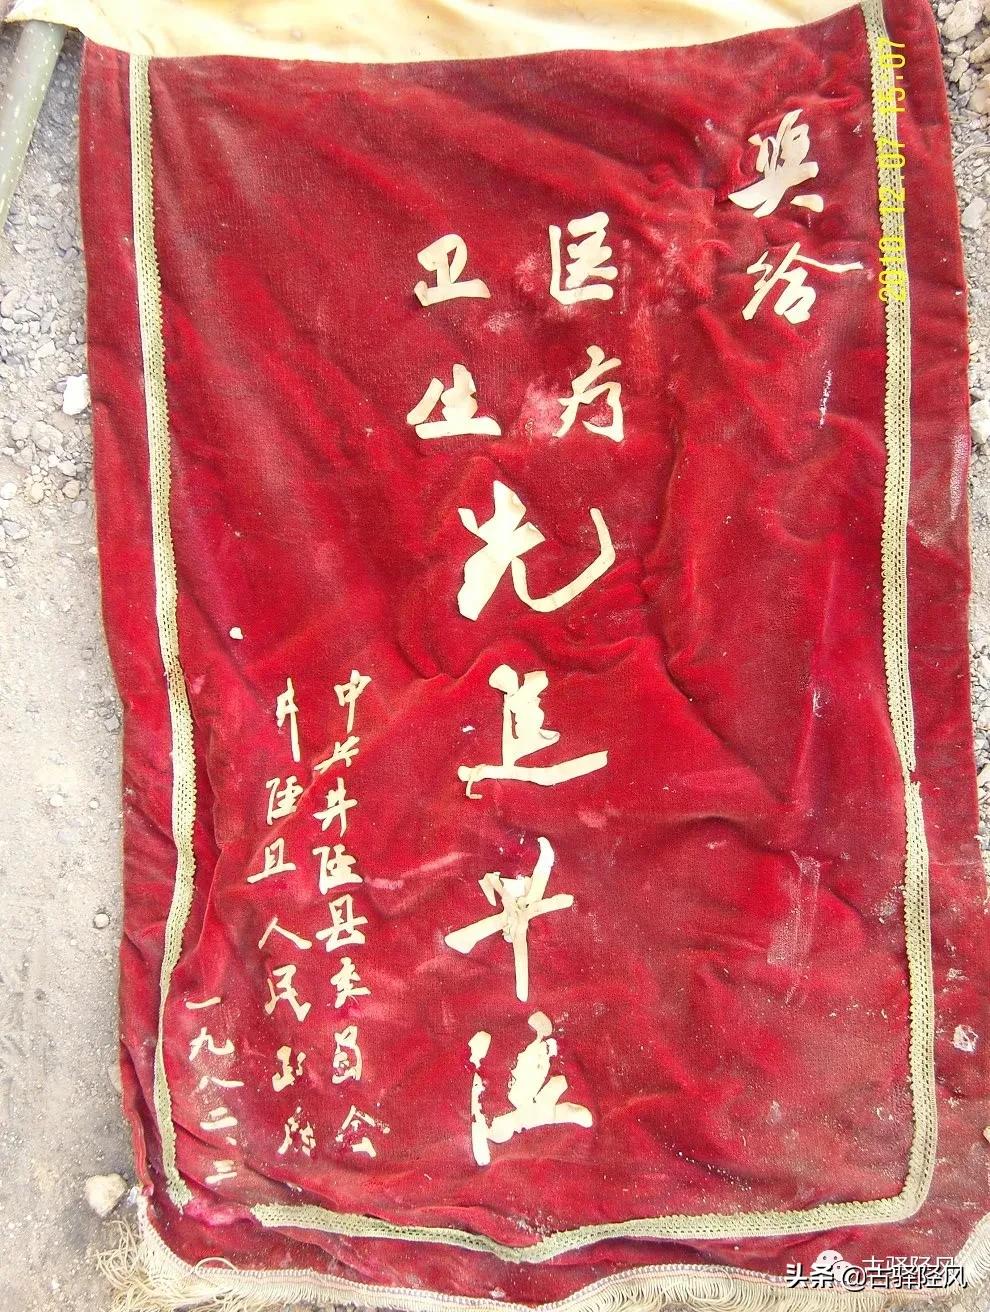 奖给
医疗
卫生
先进单位
中共井陉县委员会
井陉县人民政府
一九八二、三
2010 12 07 15:07
古驿陉风
头条 @古驿陉风